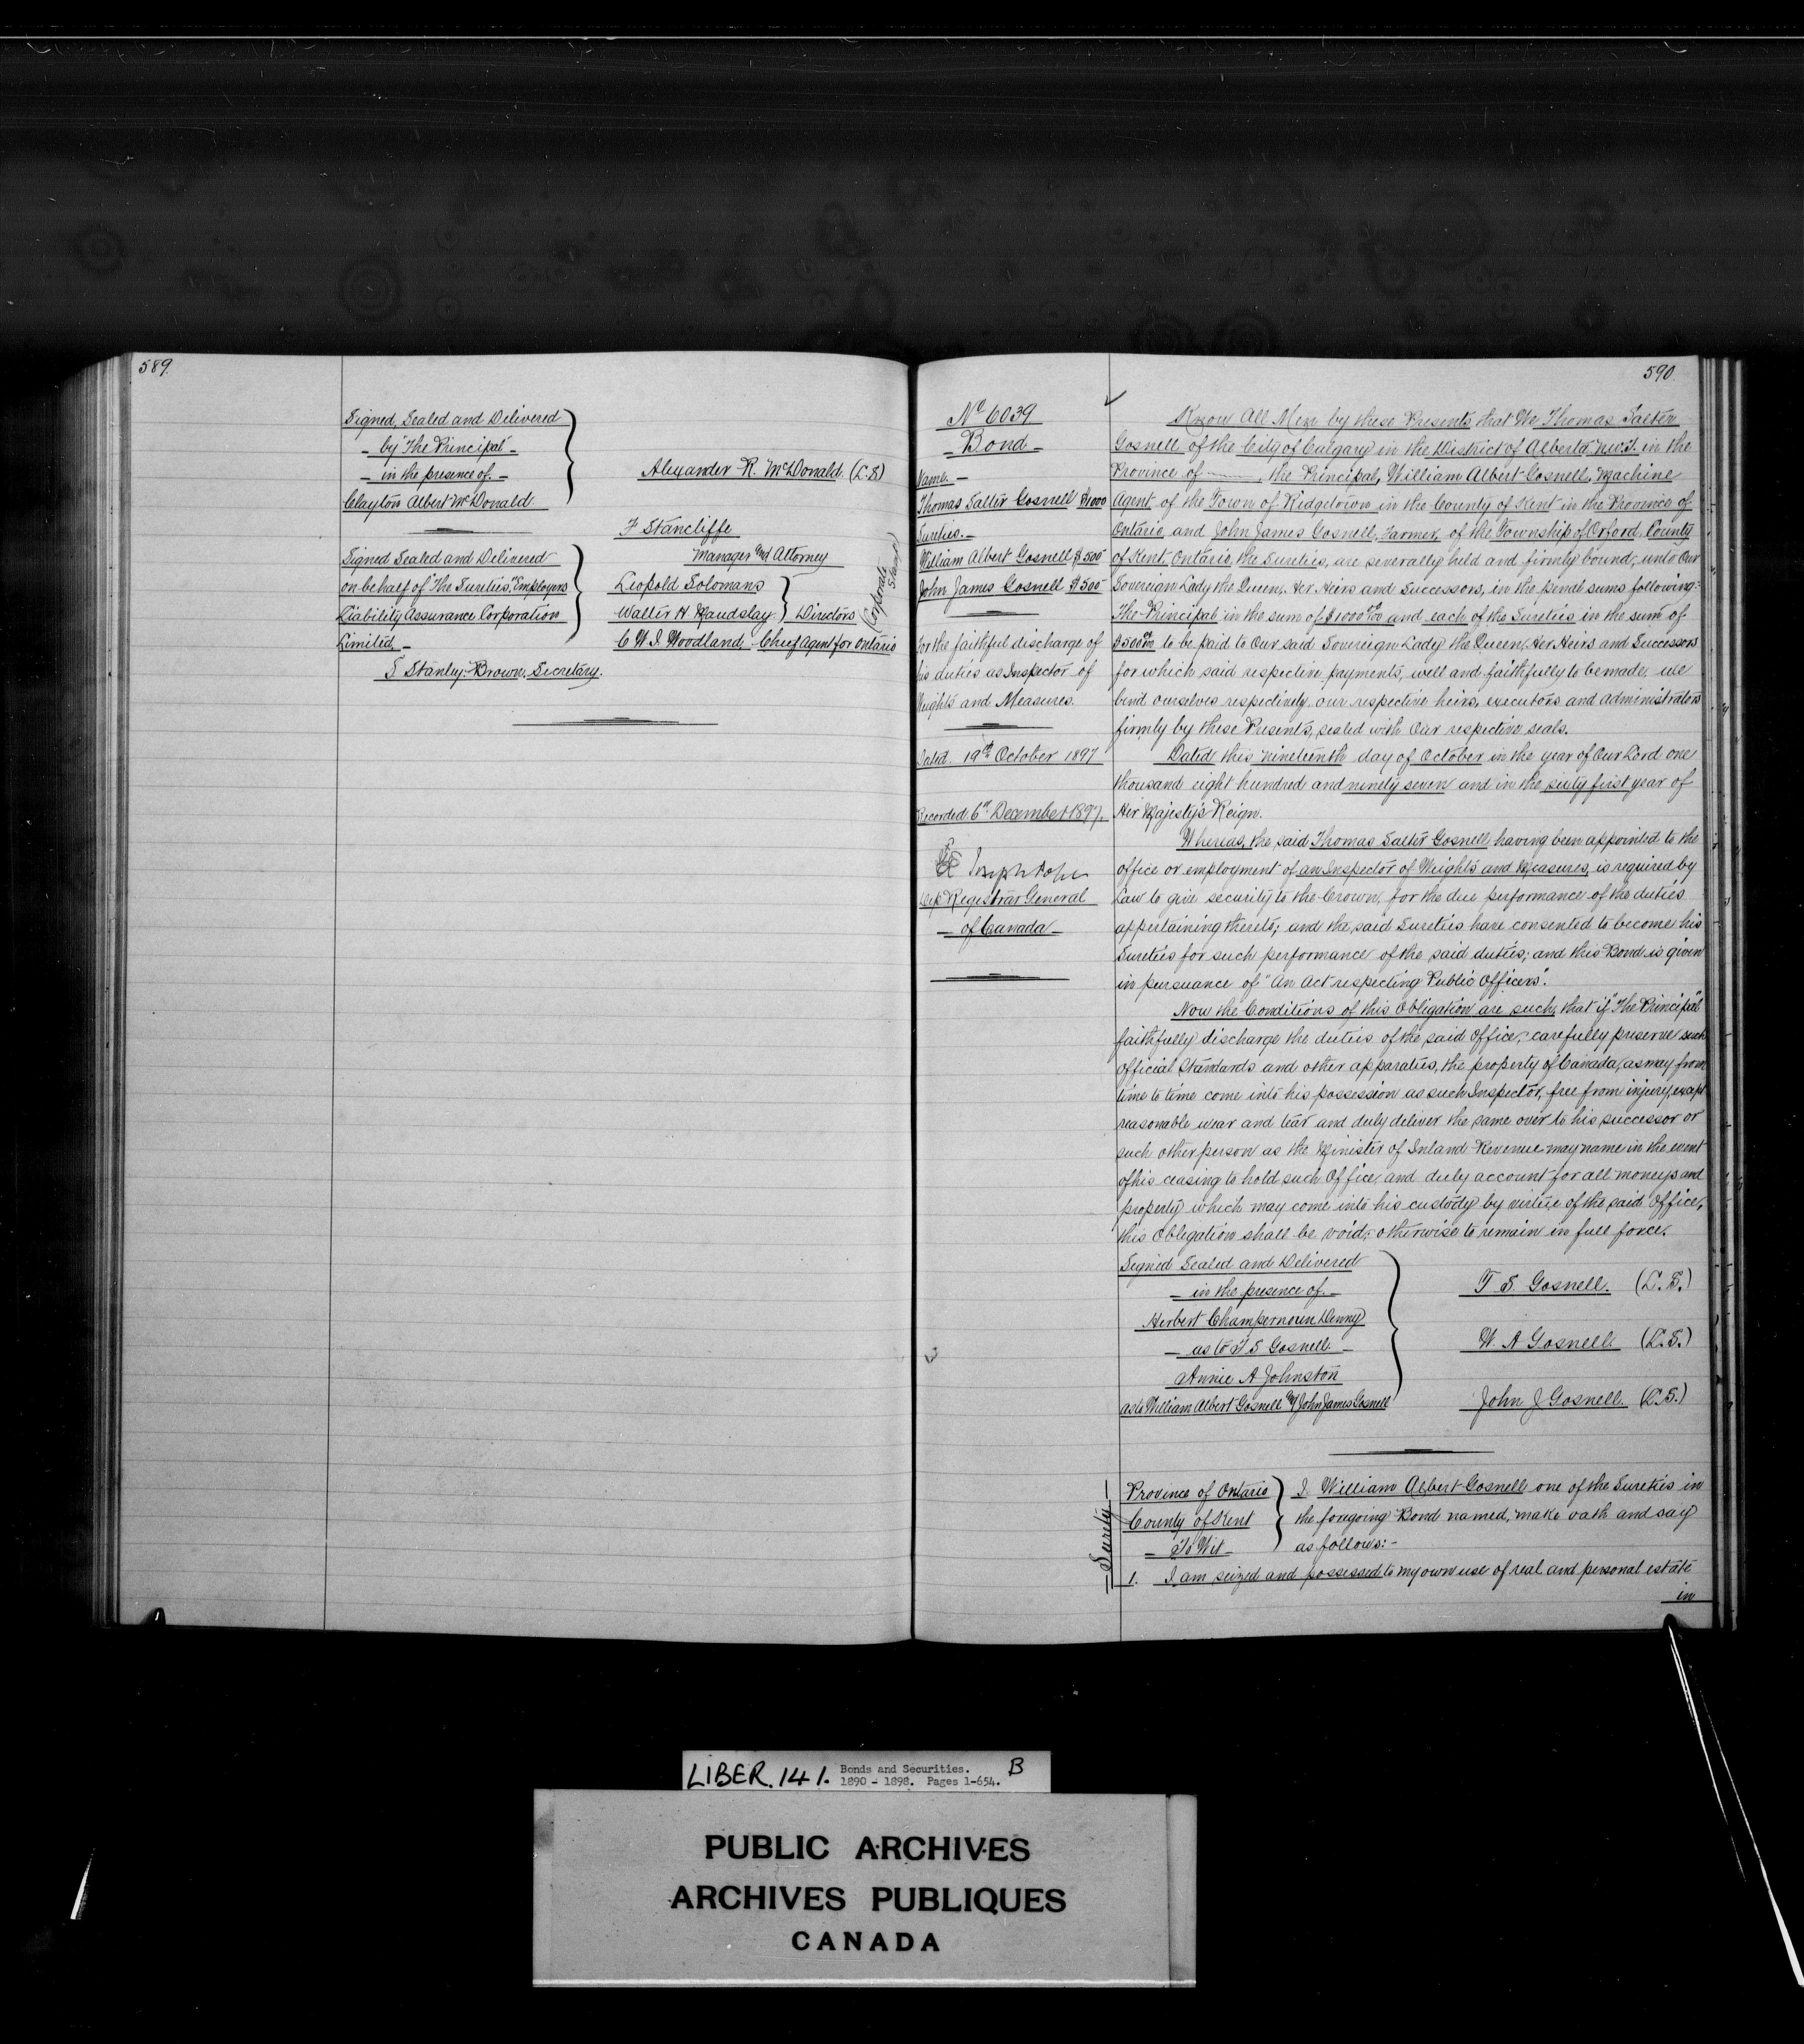 589.
Signed, Sealed and Delivered
- by "The Principal" -
- in the presence of. -
Clayton Albert McDonald.
Alexander R. McDonald. (L.S)
F Stancliffe
Manager and Attorney
Signed Sealed and Delivered
on behalf of The Sureties, "Employers
Liability Assurance Corporation
Limited. -
Leopold Solomans
Walter H Maudslay } Directors
C W I Woodland. Chief Agent for Ontario
(Corporate
S Stanley. Brown. Secretary.
590.
No 6039
- Bond -
Name. -
Thomas Salter Gosnell $1000
Sureties. -
William Albert Gosnell $500
John James Gosnell $500
For the faithful discharge of
his duties as Inspector of
Weights and Measures.
Dated. 19th October 1897
Recorded 6th December 1897.
Joseph Pope
Dep Registrar General
- of Canada -
Know All Men by these Presents that We Thomas Salter
Gosnell of the City of Calgary in the District of Alberta N.W.T. in the
Province of ——, the Principal, William Albert Gosnell, Machine
Agent of the Town of Ridgetown in the County of Kent in the Province of
Ontario and John James Gosnell, Farmer, of the Township of Orford, County
of Kent, Ontario, the Sureties, are severally held and firmly bound, unto Our
Sovereign Lady the Queen, Her Heirs and Successors, in the penal sums following:
The Principal in the sum of $1000 and each of the Sureties in the sum of
$500 to be paid to Our said Sovereign Lady the Queen, Her Heirs and Successors
for which said respective payments, well and faithfully to be made, we
bind ourselves respectively, our respective heirs, executors and administrators
firmly by these Presents, sealed with Our respective seals.
Dated this nineteenth day of October in the year of Our Lord one
thousand eight hundred and ninety seven and in the sixty first year of
Her Majesty's Reign.
Whereas, the said Thomas Salter Gosnell having been appointed to the
office or employment of an Inspector of Weights and Measures, is required by
Law to give security to the Crown, for the due performance of the duties
appertaining thereto; and the said Sureties have consented to become his
Sureties for such performance of the said duties; and this Bond is given
in pursuance of "An Act respecting Public Officers".
Now the Conditions of this Obligation are such, that if "The Principal"
faithfully discharge the duties of the said Office, carefully preserve such
official Standards and other apparatus, the property of Canada, as may from
time to time come into his possession as such Inspector, free from injury, except
reasonable wear and tear and duly deliver the same over to his successor or
such other person as the Minister of Inland Revenue may name in the event
of his ceasing to hold such Office, and duly account for all moneys and
property which may come into his custody by virtue of the said Office,
this Obligation shall be void; otherwise to remain in full force.
Signed Sealed and Delivered
- in the presence of. -
Herbert Champernoun Denny
- as to T S Gosnell. -
Annie A Johnston
as to William Albert Gosnell and John James Gosnell
T S. Gosnell. (L.S.)
W. A Gosnell. (L.S.)
John J Gosnell. (L.S.)
= Surety =
Province of Ontario
County of Kent
- To Wit -
I William Albert Gosnell one of the Sureties in
the foregoing Bond named, make oath and say
as follows: -
1. I am seized and possessed to my own use of real and personal estate
in
LIBER. 141. Bonds and Securities.
1890 - 1898. Pages 1-654. B
PUBLIC ARCHIVES
ARCHIVES PUBLIQUES
CANADA